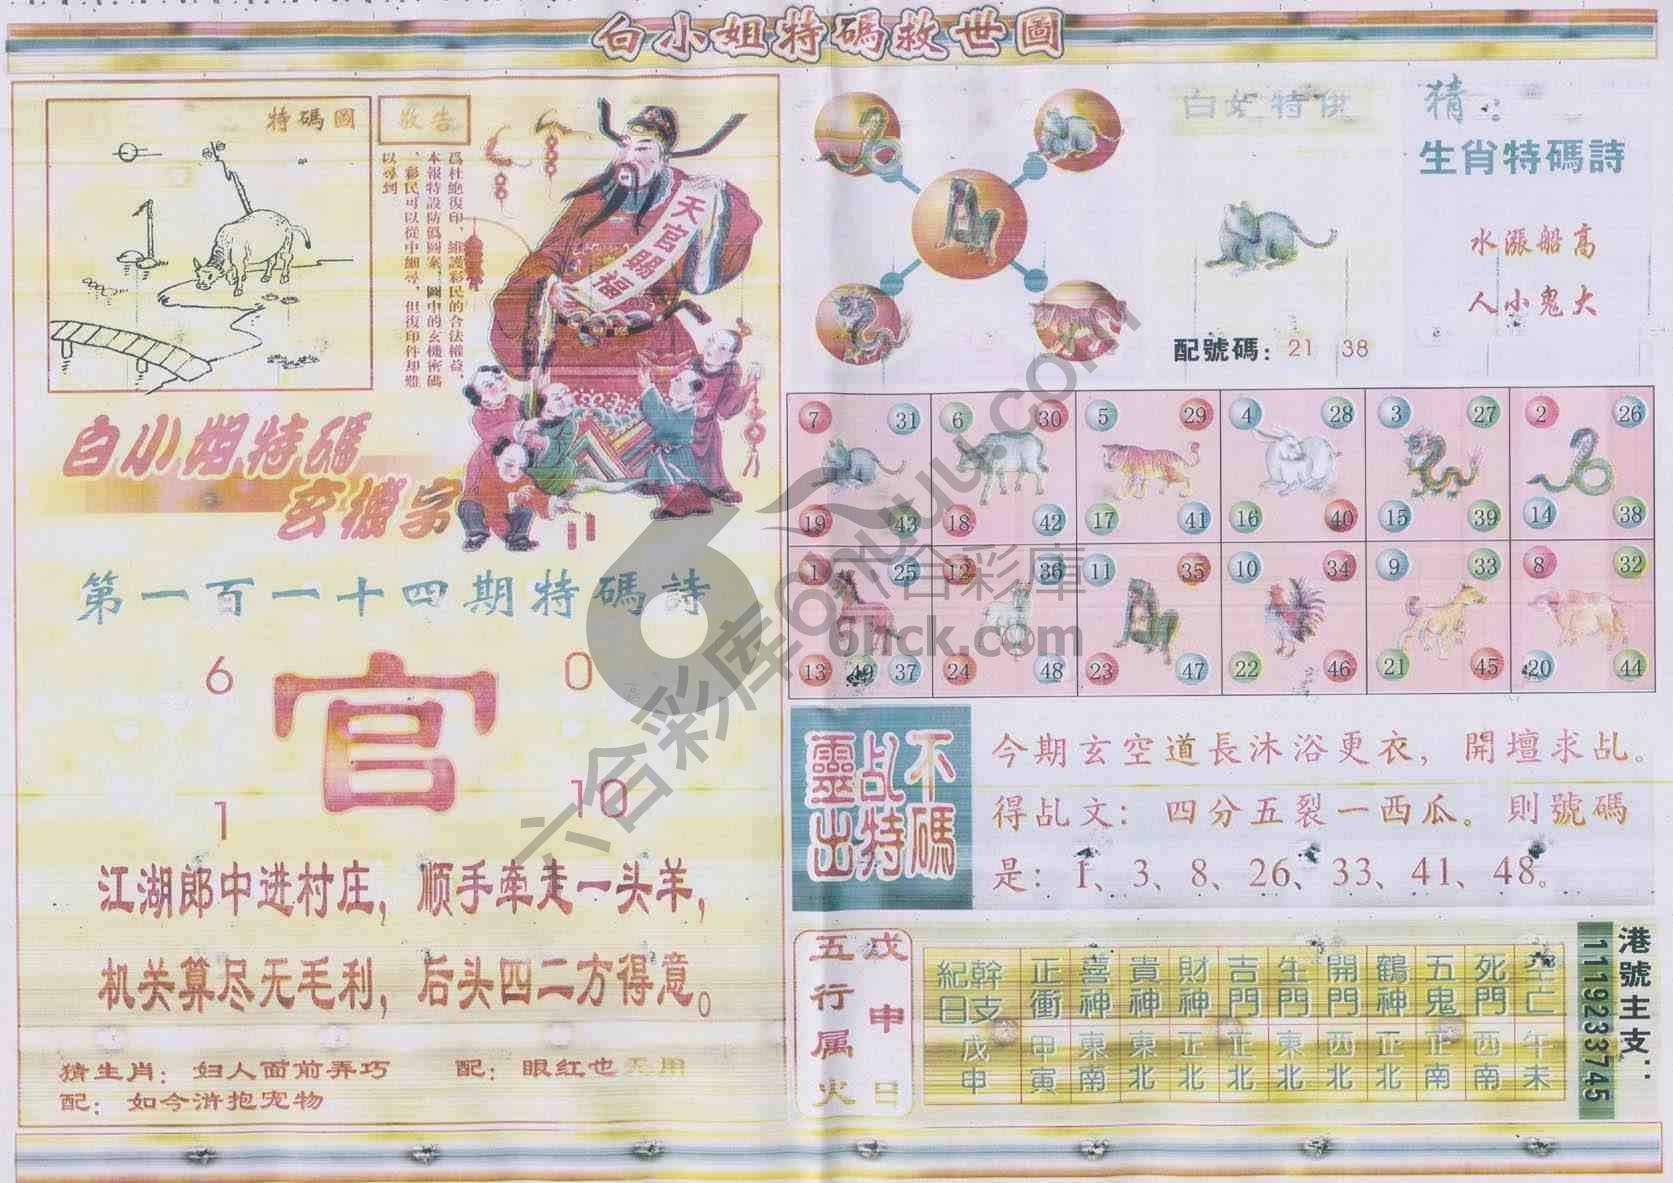 白小姐特碼救世圖
特碼圖
敬告
爲杜絶復印，維護彩民的合法權益，
本報特設防僞圖案，圖中的玄機密碼
，彩民可以從中細尋，但復印件却難
以尋到。
天官賜福
白小姐特碼
玄機字
第一百一十四期特碼詩
6 0
官
1 10
江湖郎中进村庄，顺手牵走一头羊，
机关算尽无毛利，后头四二方得意。
猜生肖：妇人面前弄巧 配：眼红也无用
配：如今游抱宠物
白姐特供
配號碼：21 38
猜：
生肖特碼詩
水漲船高
人小鬼大
7 31 6 30 5 29 4 28 3 27 2 26
19 43 18 42 17 41 16 40 15 39 14 38
1 25 12 36 11 35 10 34 9 33 8 32
13 49 37 24 48 23 47 22 46 21 45 20 44
靈乩不
出特碼
今期玄空道長沐浴更衣，開壇求乩。
得乩文：四分五裂一西瓜。則號碼
是：1、3、8、26、33、41、48。
戊申日
五行属火
紀日 幹支 正衝 喜神 貴神 財神 吉門 生門 開門 鶴神 五鬼 死門 空亡
戊申 甲寅 東南 東北 正北 正北 東北 西北 正北 正南 西南 午未
港號主支：
1119233745
六合彩库onuuu.com
六合彩庫
6hck.com